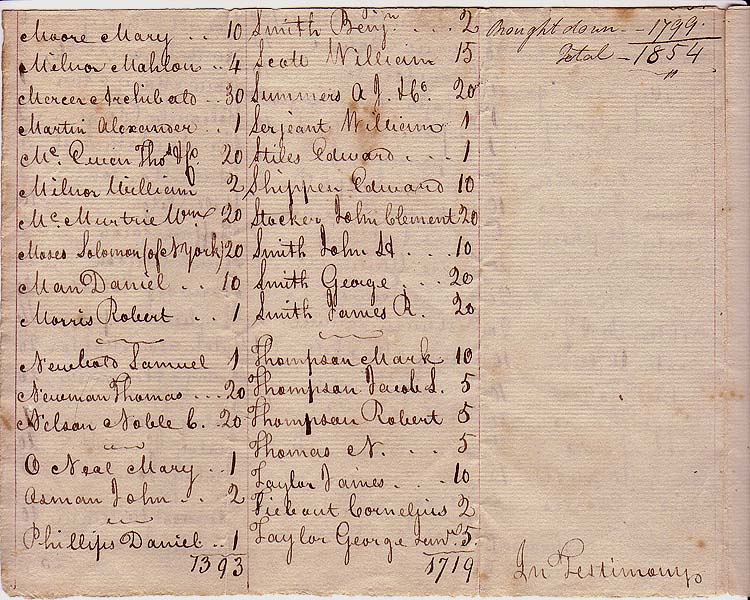 Moore Mary .. 10
Milnor Mahlon .. 4
Mercer Archibald .. 30
Martin Alexander .. 1
Mc. Euen Thos. & Co. 20
Milnor William 2
Mc. Murtrie Wm. 20
Moses Solomon (of N York) 20
Man Daniel .. 10
Morris Robert .. 1
Newbold Samuel 1
Newman Thomas ... 20
Nelson Noble C. .. 20
O Neal Mary .. 1
Osman John .. 2
Phillips Daniel .. 1
1393
Smith Benjn. ... 2
Scott William 15
Summers A J. & Co. 20
Serjeant William 1
Stiles Edward ... 1
Shippen Edward 10
Stocker John Clement 20
Smith John H ... 10
Smith George ... 20
Smith James R. 20
Thompson Mark 10
Thompson Jacob S. 5
Thompson Robert 5
Thomas N. ... 5
Taylor James ... 10
Tiebout Cornelius 2
Taylor George Junr. 5.
1719
Brought down -- 1799.
Total - 1854
In Testimony